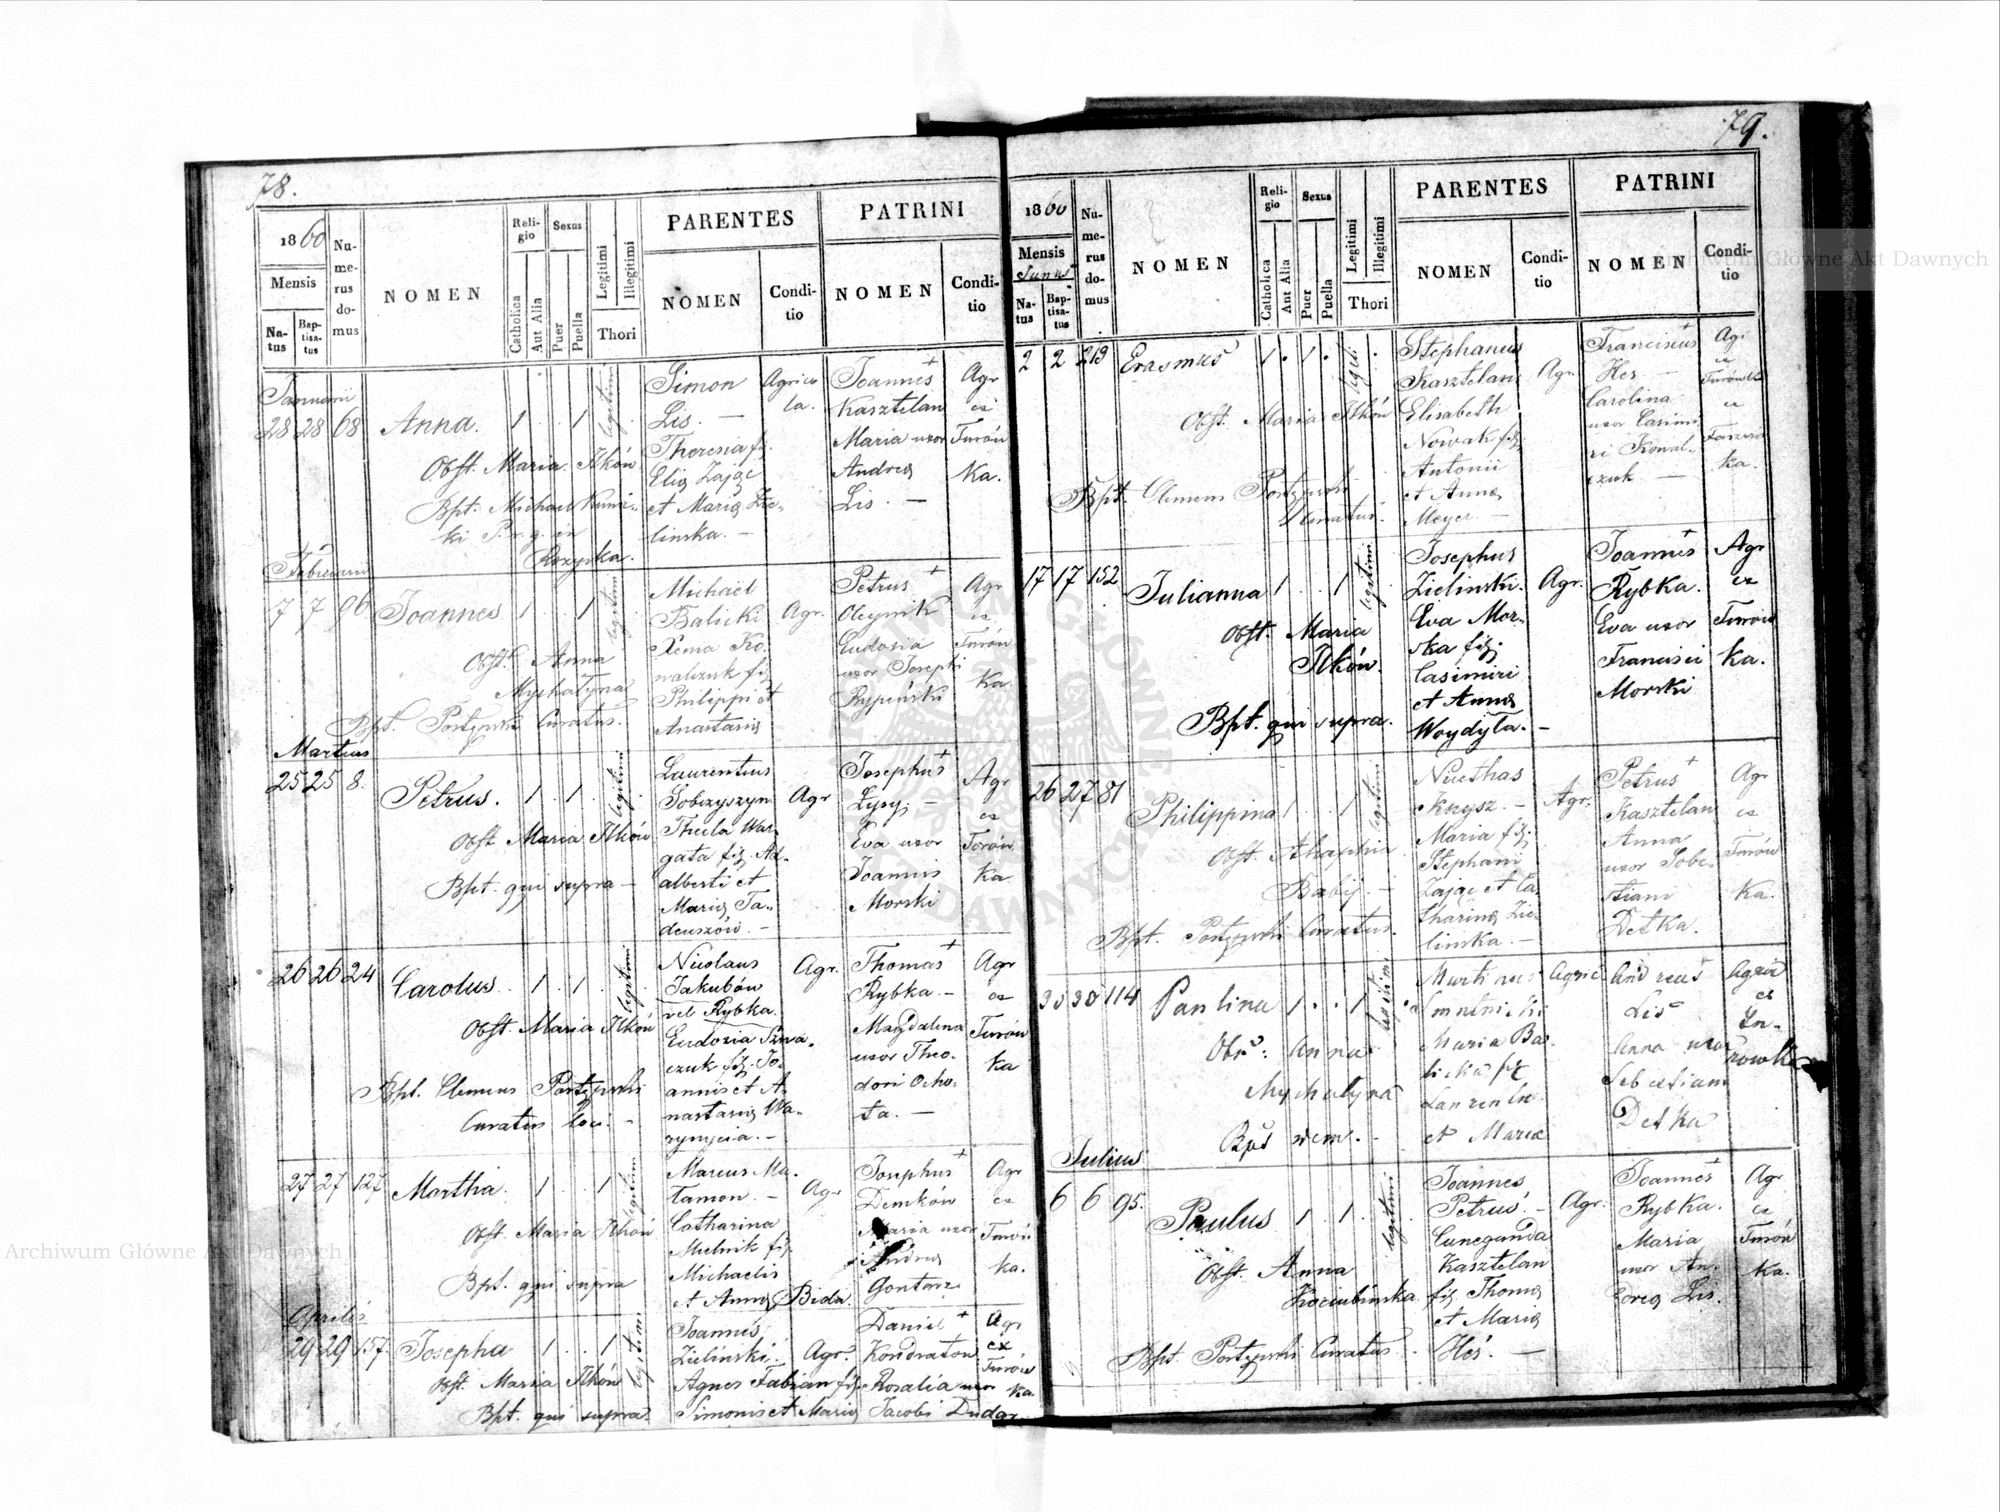 78.
1860
Mensis
Natus
Baptisatus
Numerus domus
NOMEN
Religio
Catholica
Aut Alia
Sexus
Puer
Puella
Legitimi
Illegitimi
Thori
PARENTES
NOMEN
Conditio
PATRINI
NOMEN
Conditio
Januarii
28 28 68 Anna. 1 1 legitimi
Obst. Maria Ilków
Bpt. Michael
Simon
Lis. —
Theresia fil.
Elię Zając
et Marię Zie-
linska. —
Agrico
la.
Joannes +
Kasztelan
Maria uxor
Andreę
Lis. —
Agr
ex
Turów
Ka.
Februarii
7 7 96 Joannes 1 1 legitimi
Obst. Anna
Mychalyna
Bpt. Curatus.
Michael
Balicki
Xenia Ko-
walczuk fil.
Philippi et
Anastasię
Agr.
Petrus +
Oleynik
Eudosia
uxor Josephi
Agr
ex
Turów
Ka.
Martius
25 25 8. Petrus. 1 1 legitimi
Obst Maria Ilków
Bpt. qui supra —
Laurentius
Sobczyszyn
Thecla War-
gata fil. Ad-
alberti et
Marię Ta-
deuszów. —
Agr
Josephus +
Łysy. —
Eva uxor
Joannis
Morski
Agr
ex
Turów
Ka
26 26 24 Carolus. 1 1 legitimi
Obst. Maria Ilków
Bpt. Clemens
Curatus loci. —
Nicolaus
Jakubów
vel Rybka.
Eudoxia
czuk fil. Jo-
annis et A-
nastasię
Agr.
Thomas +
Rybka. —
Magdalena
uxor Theo-
dori Ocho-
ta. —
Agr
ex
Turów
Ka
27 27 127 Martha. 1 1 legitimi
Obst. Maria Ilków
Bpt. qui supra
Marcus Ma-
tamon. —
Catharina
Mielnik fil.
Michaelis
et Annę Bida.
Agr
Josephus +
Demków
Maria uxor
Andreę
Gontarz
Agr
ex
Turów
ka.
Aprilis
29 29 157. Josepha 1 1 legitimi
Obst. Maria Ilków
Bpt. qui supra.
Joannes
Zielinski.
Agnes Fabian fil.
Simonis et Marię
Agr.
Daniel +
Kondratow
Rosalia uxor
Jacobi Dudar
Agr
ex
Turów
ka.
79.
1860
Mensis
Junius
Natus
Baptisatus
Numerus domus
NOMEN
Religio
Catholica
Aut Alia
Sexus
Puer
Puella
Legitimi
Illegitimi
Thori
PARENTES
NOMEN
Conditio
PATRINI
NOMEN
Conditio
2 2 219 Erasmus 1 1
Obst. Maria Ilków
Bpt. Clemens
Curatus.
Stephanus
Kasztelan
Elisabeth
Nowak fil.
Antonii
et Annę
Meyer —
Agr.
Franciscus +
Hes. —
Carolina
uxor Casimi-
ri Kowal-
czuk —
Agr
ex
Turówka
17 17 152 Julianna 1 1 legitimi
Obst. Maria
Ilków.
Bpt. qui supra.
Josephus
Zielinski.
Eva Mor-
ska fil.
Casimiri
et Annę
Woydyła. —
Agr.
Joannes +
Rybka.
Eva uxor
Francisci
Morski
Agr
ex
Turów
Ka.
26 27 81 Philippina 1 1 legitimi
Obst. Ahaphia
Babij. —
Bpt. Curatus.
Nicethas
Krzysz. —
Maria fil.
Stephani
Zając et Ca-
tharinę Zie-
linska. —
Agr.
Petrus +
Kasztelan
Anna
uxor Seba-
stiani
Detka.
Agr
ex
Turów
Ka.
30 30 114 Paulina 1 1
Obst: Anna
Mychalyna
Bpt idem. —
Martinus
Smutnicki
Maria Ba-
licka fil
Laurentii
et Marię
Agric
Andreas
Lis
Anna uxor
Sebastiani
Detka
Agric
ex
Tu-
rowka
Julius
6 6 95. Paulus 1 1 legitimi
Obst. Anna
Kociubinska
Bpt. Curatus.
Joannes
Petrus. —
Cunegunda
Kasztelan
fil. Thomę
et Marię
Hes. —
Agr.
Joannes +
Rybka.
Maria
uxor An-
dreę Lis.
Agr
ex
Turów
Ka.
Archiwum Główne Akt Dawnych
Archiwum Główne Akt Dawnych